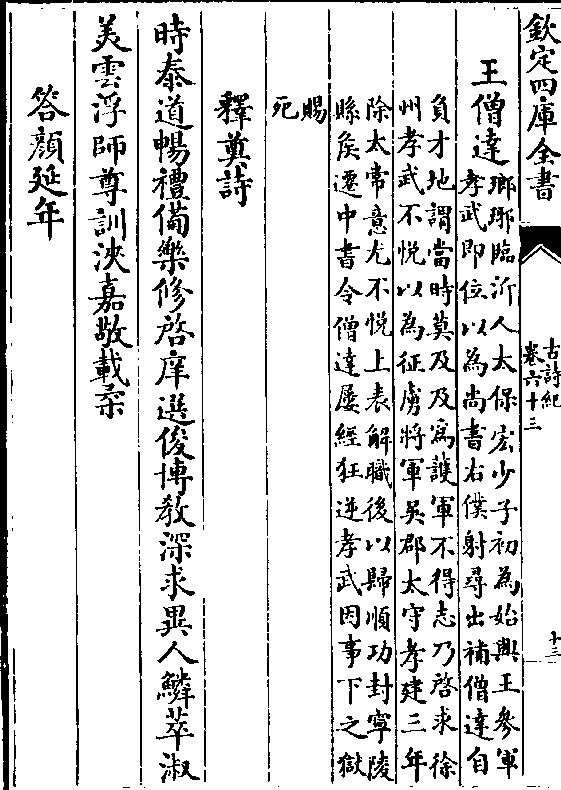 欽定四庫全書
古詩紀
卷六十三
十三
王僧達
瑯琊臨沂人太保宏少子初為始興王參軍
孝武即位以為尚書右僕射尋出補僧達自
負才地謂當時莫及及為護軍不得志乃啓求徐
州孝武不悦以為征虜將軍吳郡太守孝建三年
除太常意尤不悦上表解職後以歸順功封寧陵
縣矦遷中書令僧達屢經狂逆孝武因事下之獄
賜
死
釋奠詩
時泰道暢禮備樂修啓庠選俊博教深求異人鱗萃淑
美雲浮師尊訓浹嘉敬載柔
答顔延年